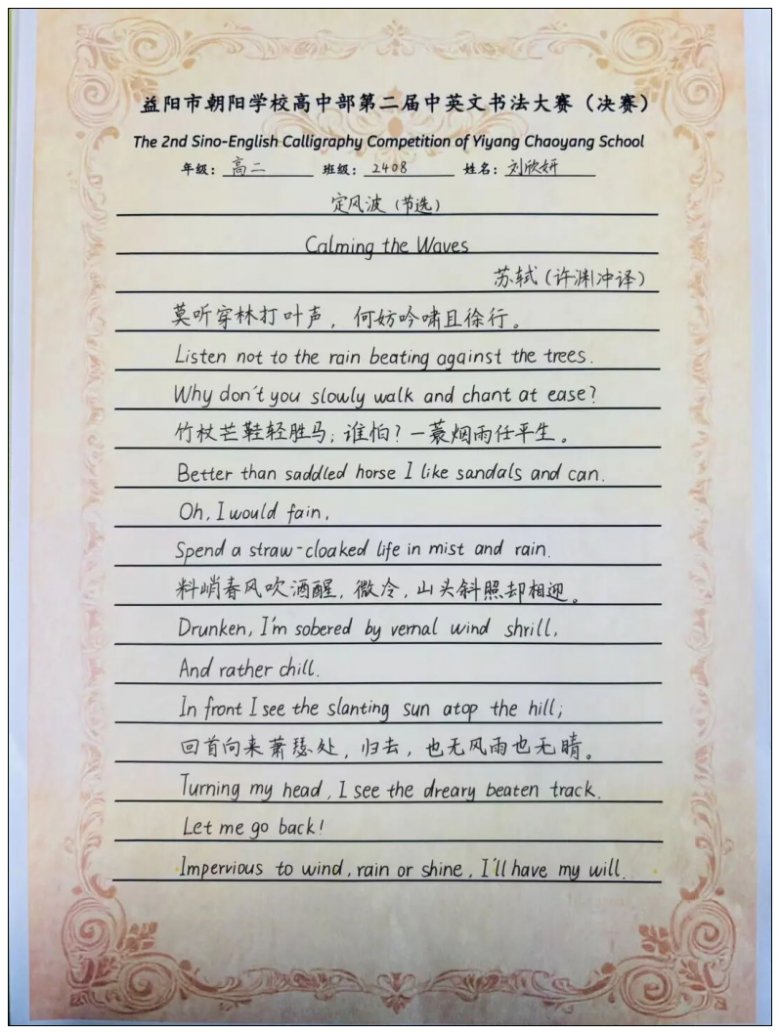 益阳市朝阳学校高中部第二届中英文书法大赛（决赛）
The 2nd Sino-English Calligraphy Competition of Yiyang Chaoyang School
年级：高二 班级：2408 姓名：刘欣妍
定风波（节选）
Calming the Waves
苏轼（许渊冲译）
莫听穿林打叶声，何妨吟啸且徐行。
Listen not to the rain beating against the trees.
Why don't you slowly walk and chant at ease?
竹杖芒鞋轻胜马；谁怕？一蓑烟雨任平生。
Better than saddled horse I like sandals and can.
Oh, I would fain,
Spend a straw-cloaked life in mist and rain.
料峭春风吹酒醒，微冷，山头斜照却相迎。
Drunken, I'm sobered by vernal wind shrill,
And rather chill.
In front I see the slanting sun atop the hill;
回首向来萧瑟处，归去，也无风雨也无晴。
Turning my head, I see the dreary beaten track.
Let me go back!
Impervious to wind, rain or shine, I'll have my will.